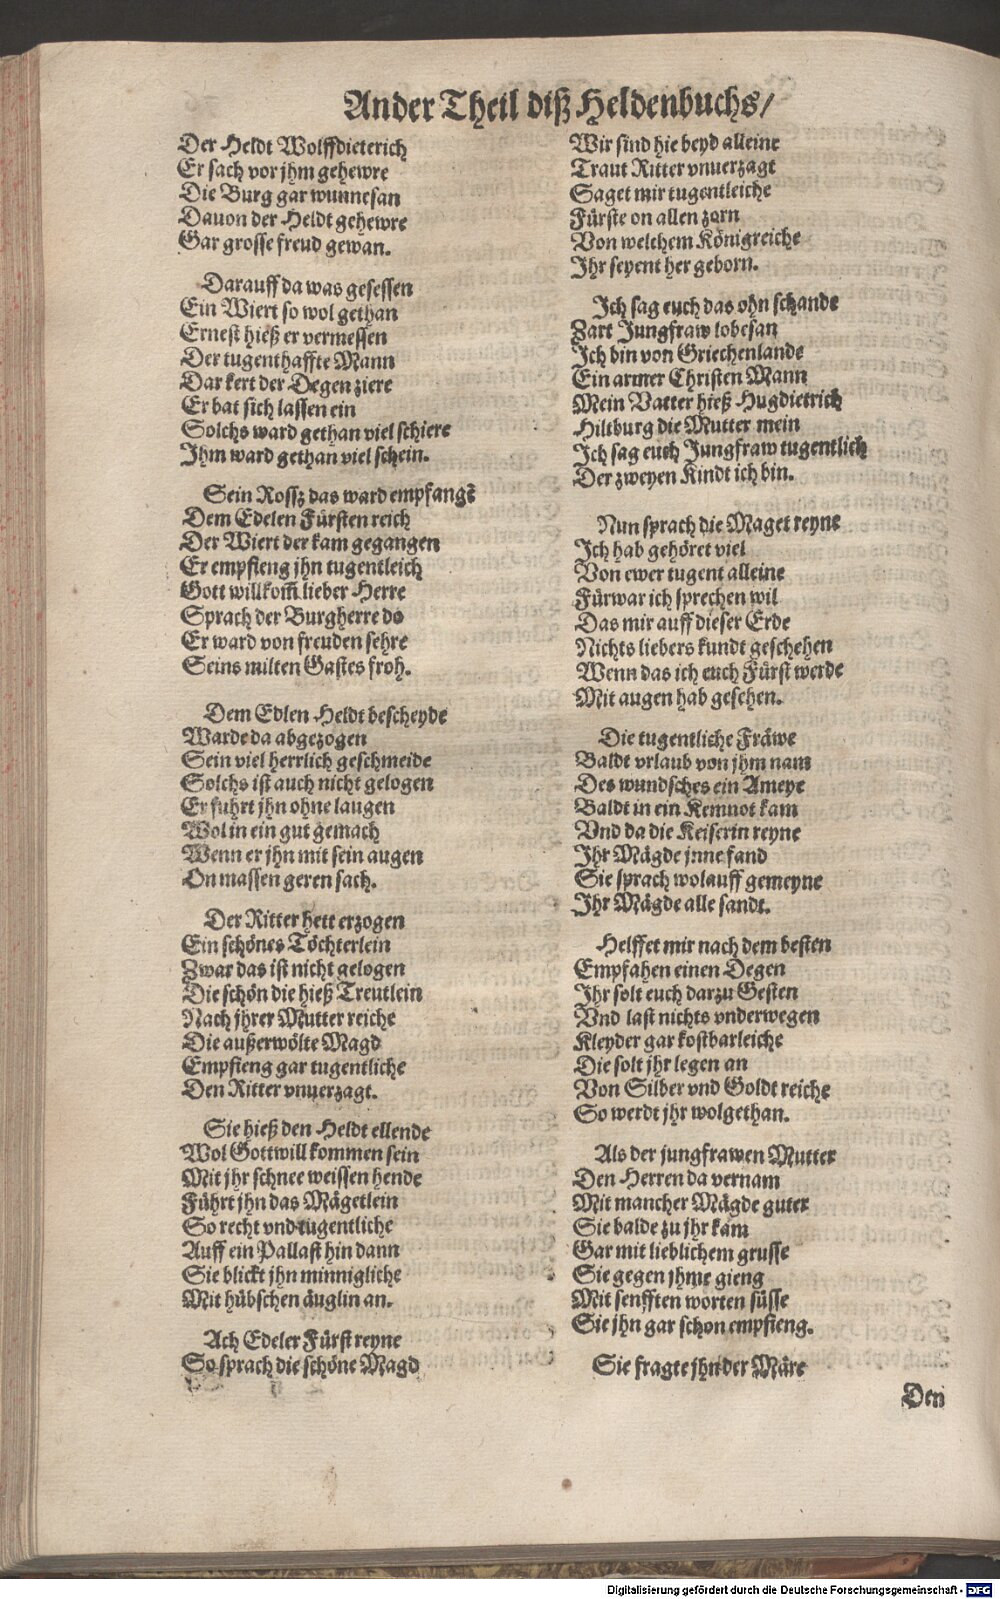 Ander Theil diß Heldenbuchs/
Der Heldt Wolffdieterich
Er sach vor jhm gehewre
Die Burg gar wunnesan
Dauon der Heldt gehewre
Gar grosse freud gewan.
Darauff da was gesessen
Ein Wiert so wol gethan
Ernest hieß er vermessen
Der tugenthaffte Mann
Dar kert der Degen ziere
Er bat sich lassen ein
Solchs ward gethan viel schiere
Ihm ward gethan viel schein.
Sein Rossz das ward empfangē
Dem Edelen Fürsten reich
Der Wiert der kam gegangen
Er empfieng jhn tugentleich
Gott willkom̃ lieber Herre
Sprach der Burgherre do
Er ward von freuden sehre
Seins milten Gastes froh.
Dem Edlen Heldt bescheyde
Warde da abgezogen
Sein viel herrlich geschmeide
Solchs ist auch nicht gelogen
Er fuhrt jhn ohne laugen
Wol in ein gut gemach
Wenn er jhn mit sein augen
On massen geren sach.
Der Ritter hett erzogen
Ein schönes Töchterlein
Zwar das ist nicht gelogen
Die schön die hieß Treutlein
Nach jhrer Mutter reiche
Die außerwölte Magd
Empfieng gar tugentliche
Den Ritter vnuerzagt.
Sie hieß den Heldt ellende
Wol Gottwill kommen sein
Mit jhr schnee weissen hende
Führt jhn das Mägetlein
So recht vnd tugentliche
Auff ein Pallast hin dann
Sie blickt jhn minnigliche
Mit hübschen äuglin an.
Ach Edeler Fürst reyne
So sprach die schöne Magd
Wir sind hie beyd alleine
Traut Ritter vnuerzagt
Saget mir tugentleiche
Fürste on allen zorn
Von welchem Königreiche
Ihr seyent her geborn.
Ich sag euch das ohn schande
Zart Jungfraw lobesan
Ich bin von Griechenlande
Ein armer Christen Mann
Mein Vatter hieß Hugdietrich
Hiltburg die Mutter mein
Ich sag euch Jungfraw tugentlich
Der zweyen Kindt ich bin.
Nun sprach die Maget reyne
Ich hab gehöret viel
Von ewer tugent alleine
Fürwar ich sprechen wil
Das mir auff dieser Erde
Nichts liebers kundt geschehen
Wenn das ich euch Fürst werde
Mit augen hab gesehen.
Die tugentliche Fräwe
Baldt vrlaub von jhm nam
Des wundsches ein Ameye
Baldt in ein Kemnot kam
Vnd da die Keiserin reyne
Ihr Mägde jnne fand
Sie sprach wolauff gemeyne
Ihr Mägde alle sandt.
Helffet mir nach dem besten
Empfahen einen Degen
Ihr solt euch darzu Gesten
Vnd last nichts vnderwegen
Kleyder gar kostbarleiche
Die solt jhr legen an
Von Silber vnd Goldt reiche
So werdt jhr wolgethan.
Als der jungfrawen Mutter
Den Herren da vernam
Mit mancher Mägde guter
Sie balde zu jhr kam
Gar mit lieblichem grusse
Sie gegen jhme gieng
Mit senfften worten süsse
Sie jhn gar schon empfieng.
Sie fragte jhn der Märe
Den
Digitalisierung gefördert durch die Deutsche Forschungsgemeinschaft - DFG